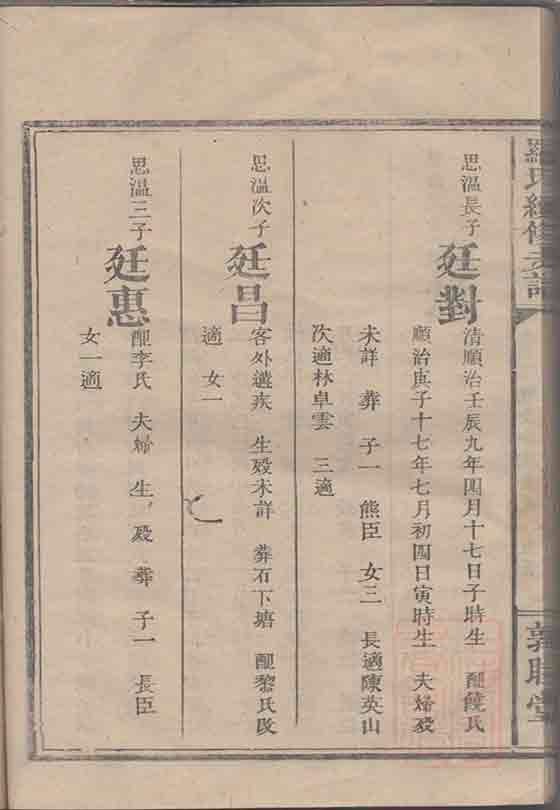 羅氏續修支譜
敦睦堂
思溫長子
廷對
清順治壬辰九年四月十七日子時生 配饒氏
順治庚子十七年七月初四日寅時生 夫婦歿
未詳 葬 子一 熊臣 女三 長適陳英山
次適林卓雲 三適
思溫次子
廷昌
客外遘疾 生歿未詳 葬石下塘 配黎氏改
適 女一
思溫三子
廷惠
配李氏 夫婦 生 歿 葬 子一 長臣
女一適